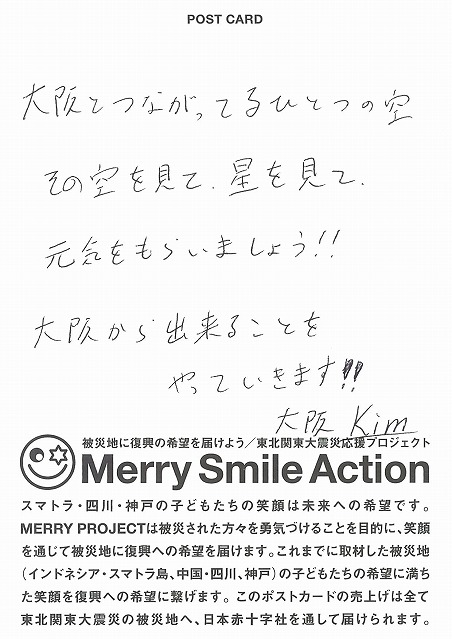 POST CARD
大阪とつながってるひとつの空
その空を見て、星を見て、
元気をもらいましょう!!
大阪から出来ることを
やっていきます!!
大阪 Kim
被災地に復興の希望を届けよう／東北関東大震災応援プロジェクト
Merry Smile Action
スマトラ・四川・神戸の子どもたちの笑顔は未来への希望です。
MERRY PROJECTは被災された方々を勇気づけることを目的に、笑顔
を通じて被災地に復興への希望を届けます。これまでに取材した被災地
（インドネシア・スマトラ島、中国・四川、神戸）の子どもたちの希望に満ち
た笑顔を復興への希望に繋げます。このポストカードの売上げは全て
東北関東大震災の被災地へ、日本赤十字社を通して届けられます。